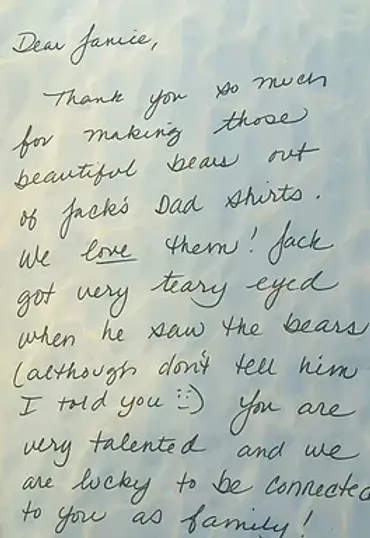 Dear Janice,
Thank you so much
for making those
beautiful bears out
of Jack's Dad shirts.
We love them! Jack
got very teary eyed
when he saw the bears
(although don't tell him
I told you :)) You are
very talented and we
are lucky to be connected
to you as family!